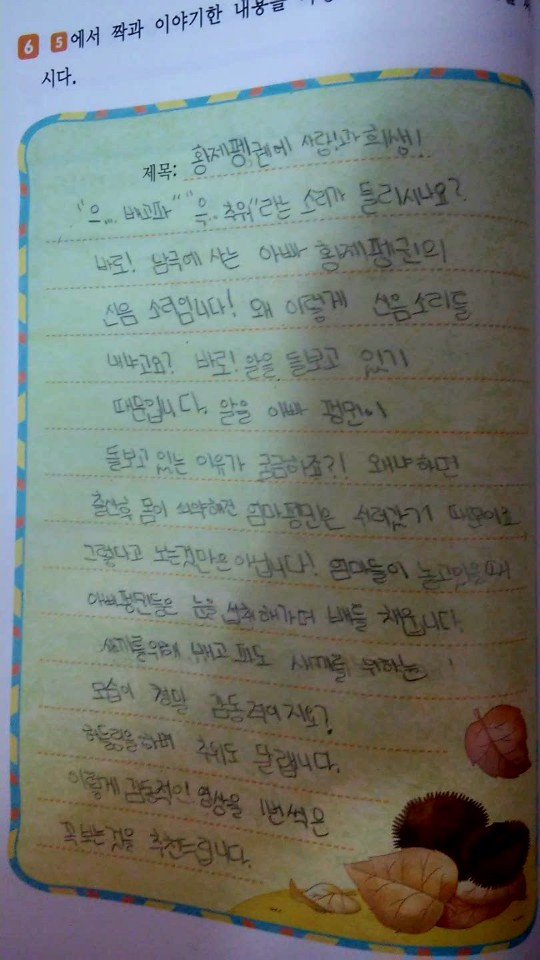 6 5에서 짝과 이야기한 내용을
시다.
제목: 황제펭귄에 사랑과 희생!
"으... 배고파" "윽.. 추워"라는 소리가 들리시나요?
바로! 남극에 사는 아빠 황제펭귄의
신음 소리입니다! 왜 이렇게 신음소리를
내냐고요? 바로! 알을 돌보고 있기
때문입니다. 알을 아빠 펭귄이
돌보고 있는 이유가 궁금하죠?! 왜냐하면
출산후 몸이 쇠약해진 엄마펭귄은 쉬러갔기 때문이죠
그렇다고 노는것만은 아닙니다! 엄마들이 놀고있을때
아빠펭귄들은 눈을 섭취해가며 배를 채웁니다.
새끼를위해 배고파도 새끼를 위하는
모습이 정말 감동적이지요?
허들링을하며 추위도 달랩니다.
이렇게 감동적인 영상을 1번씩은
꼭보는것을 추천드립니다.